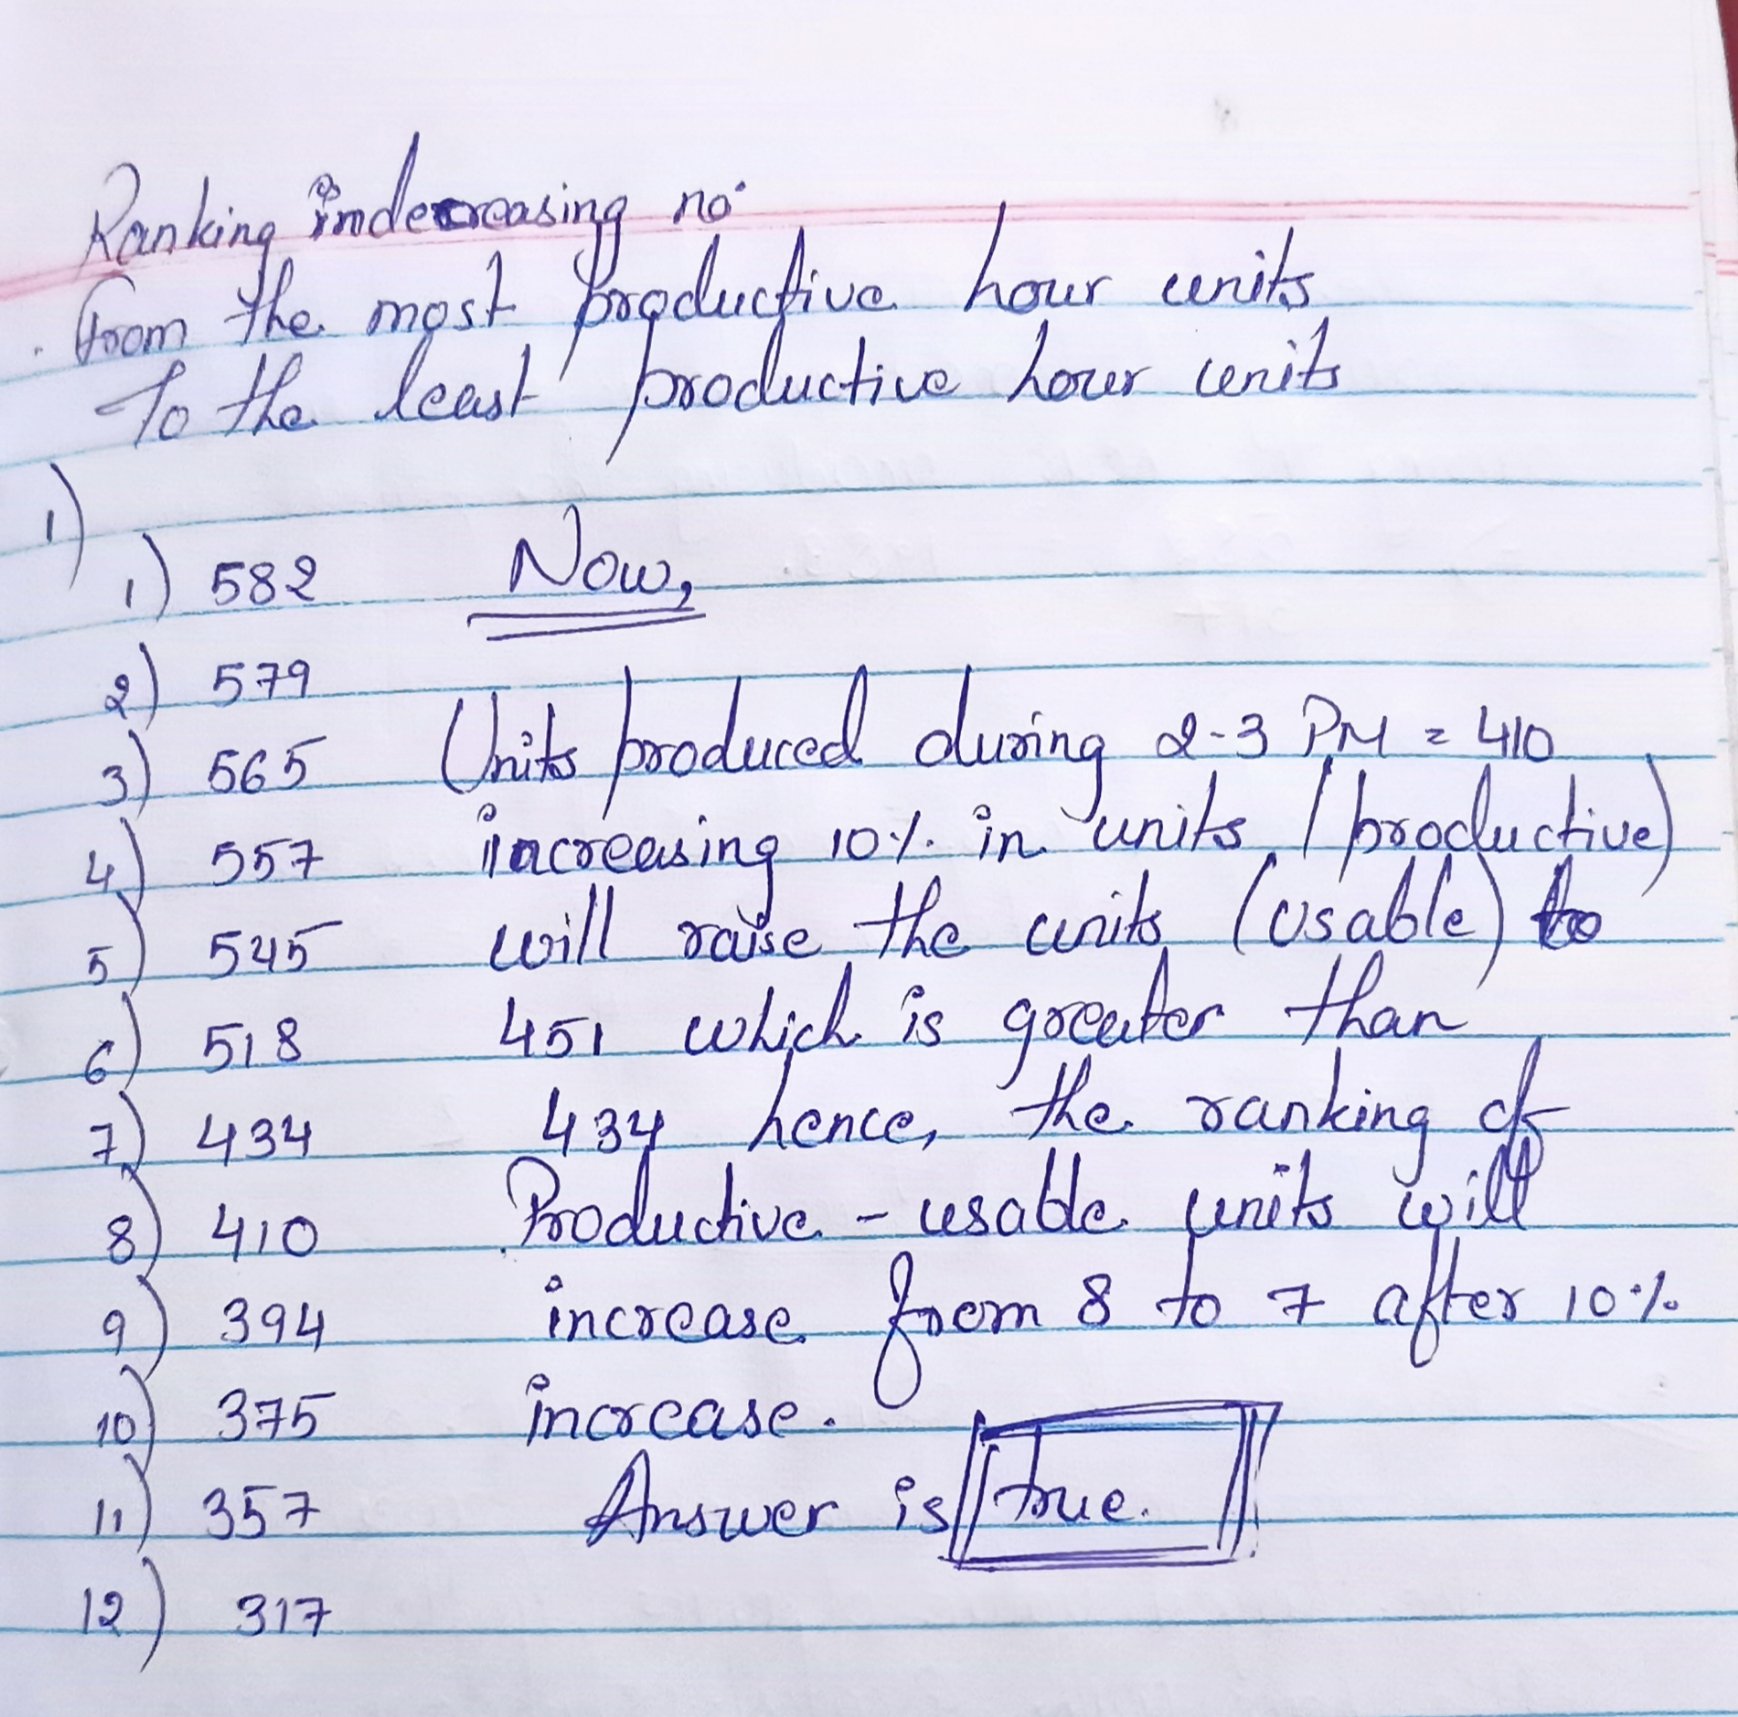 Ranking indecreasing no.
From the most productive hour units
To the least productive hour units
1)
1) 582
Now,
2) 579
3) 565
Units produced during 2-3 PM = 410
4) 557
increasing 10% in units (productive)
5) 545
will raise the units (usable) to
6) 518
451 which is greater than
7) 434
434 hence, the ranking of
8) 410
Productive - usable units will
9) 394
increase from 8 to 7 after 10%
10) 375
increase.
11) 357
Answer is true.
12) 317